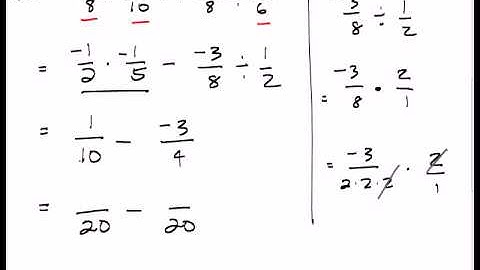 8 10 8 6
= -1/2 · -1/5 - -3/8 ÷ 1/2
= 1/10 - -3/4
= /20 - /20
-3/8 ÷ 1/2
= -3/8 · 2/1
= -3/2·2·2 · 2/1